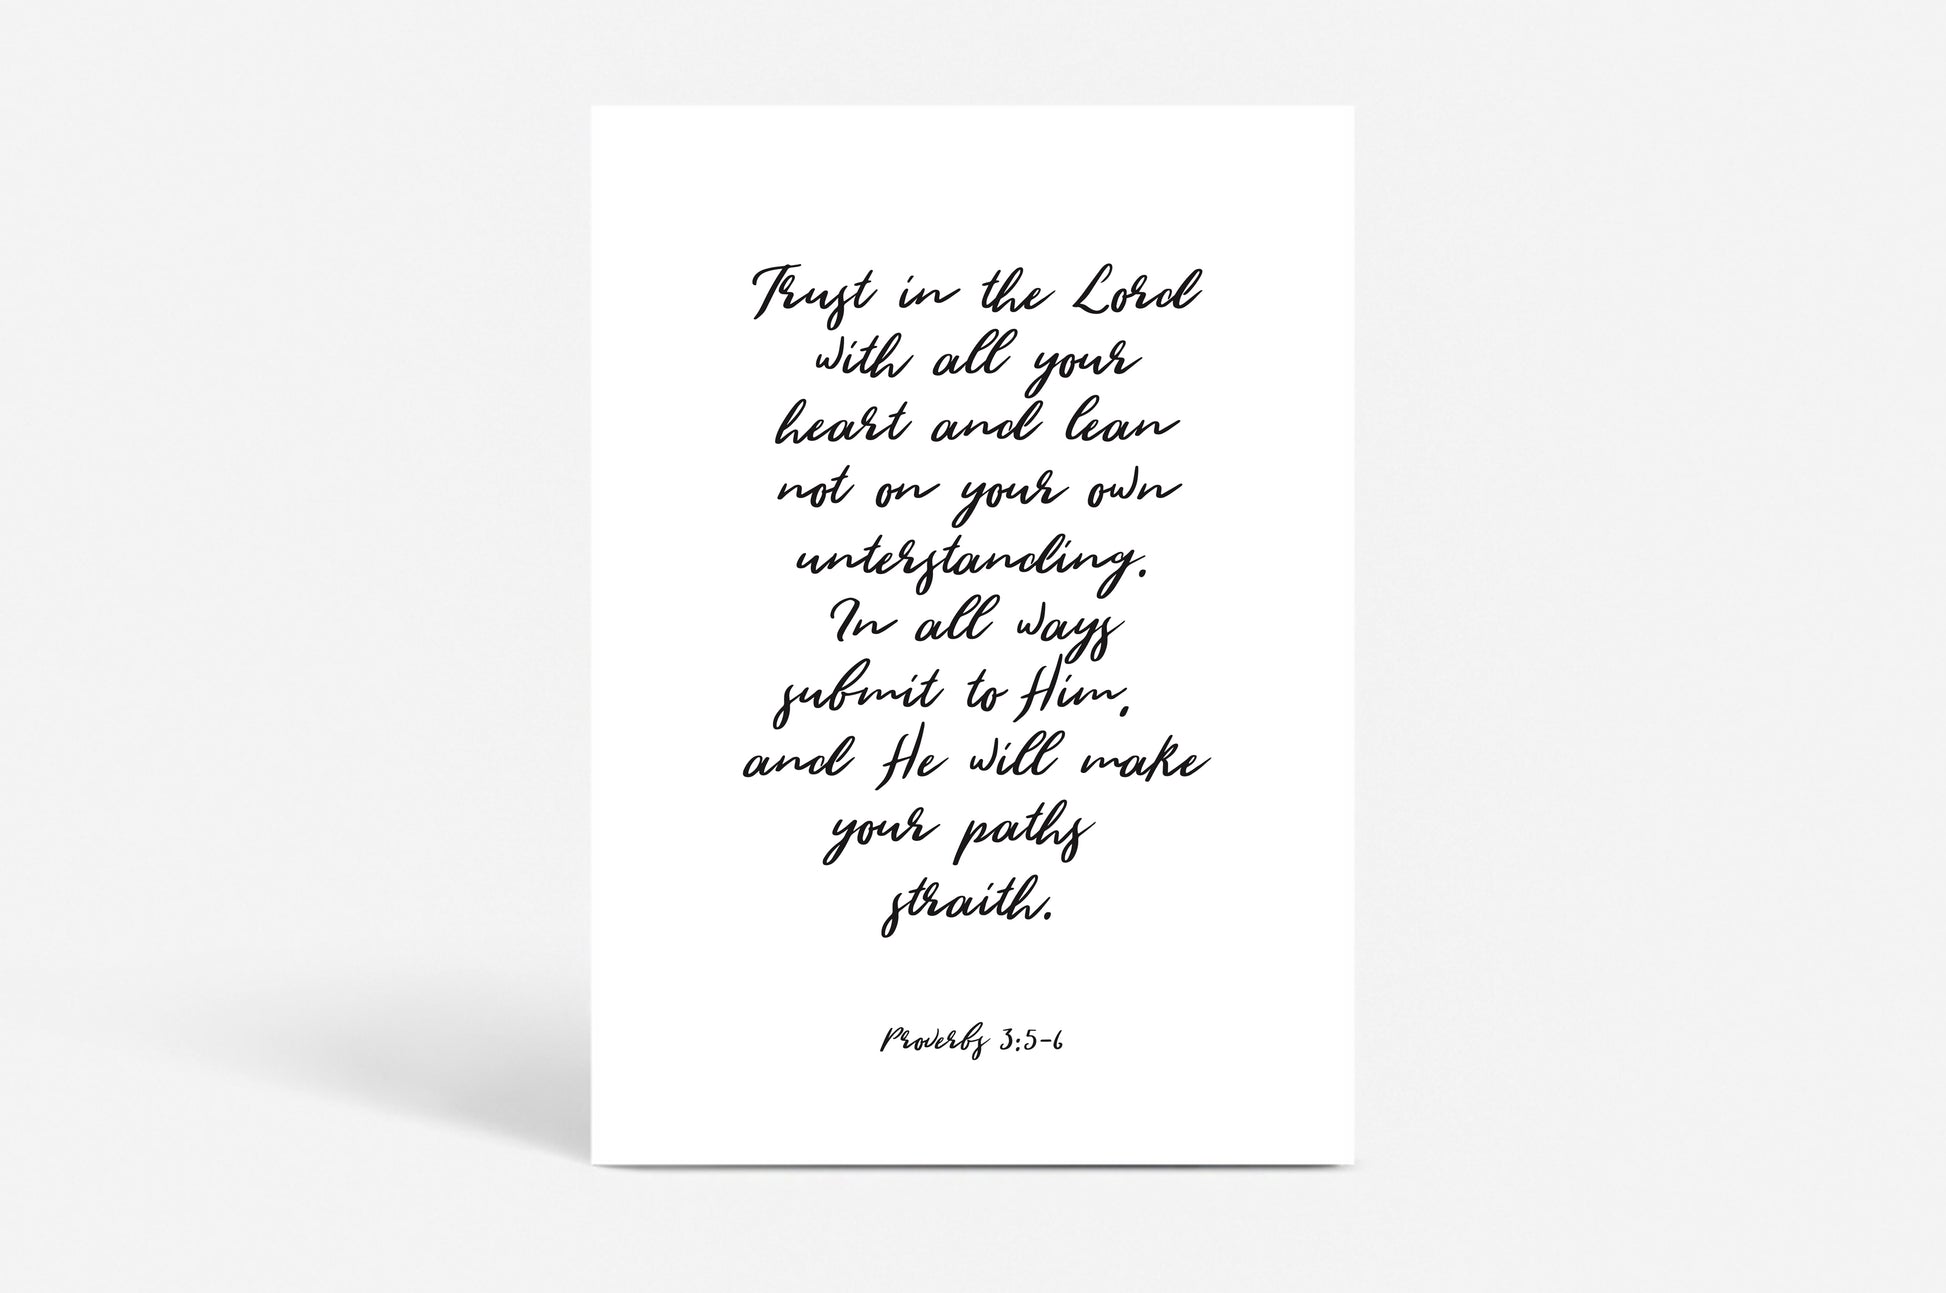 Trust in the Lord
with all your
heart and lean
not on your own
unterstanding.
In all ways
submit to Him,
and He will make
your paths
straith.
Proverbs 3:5-6